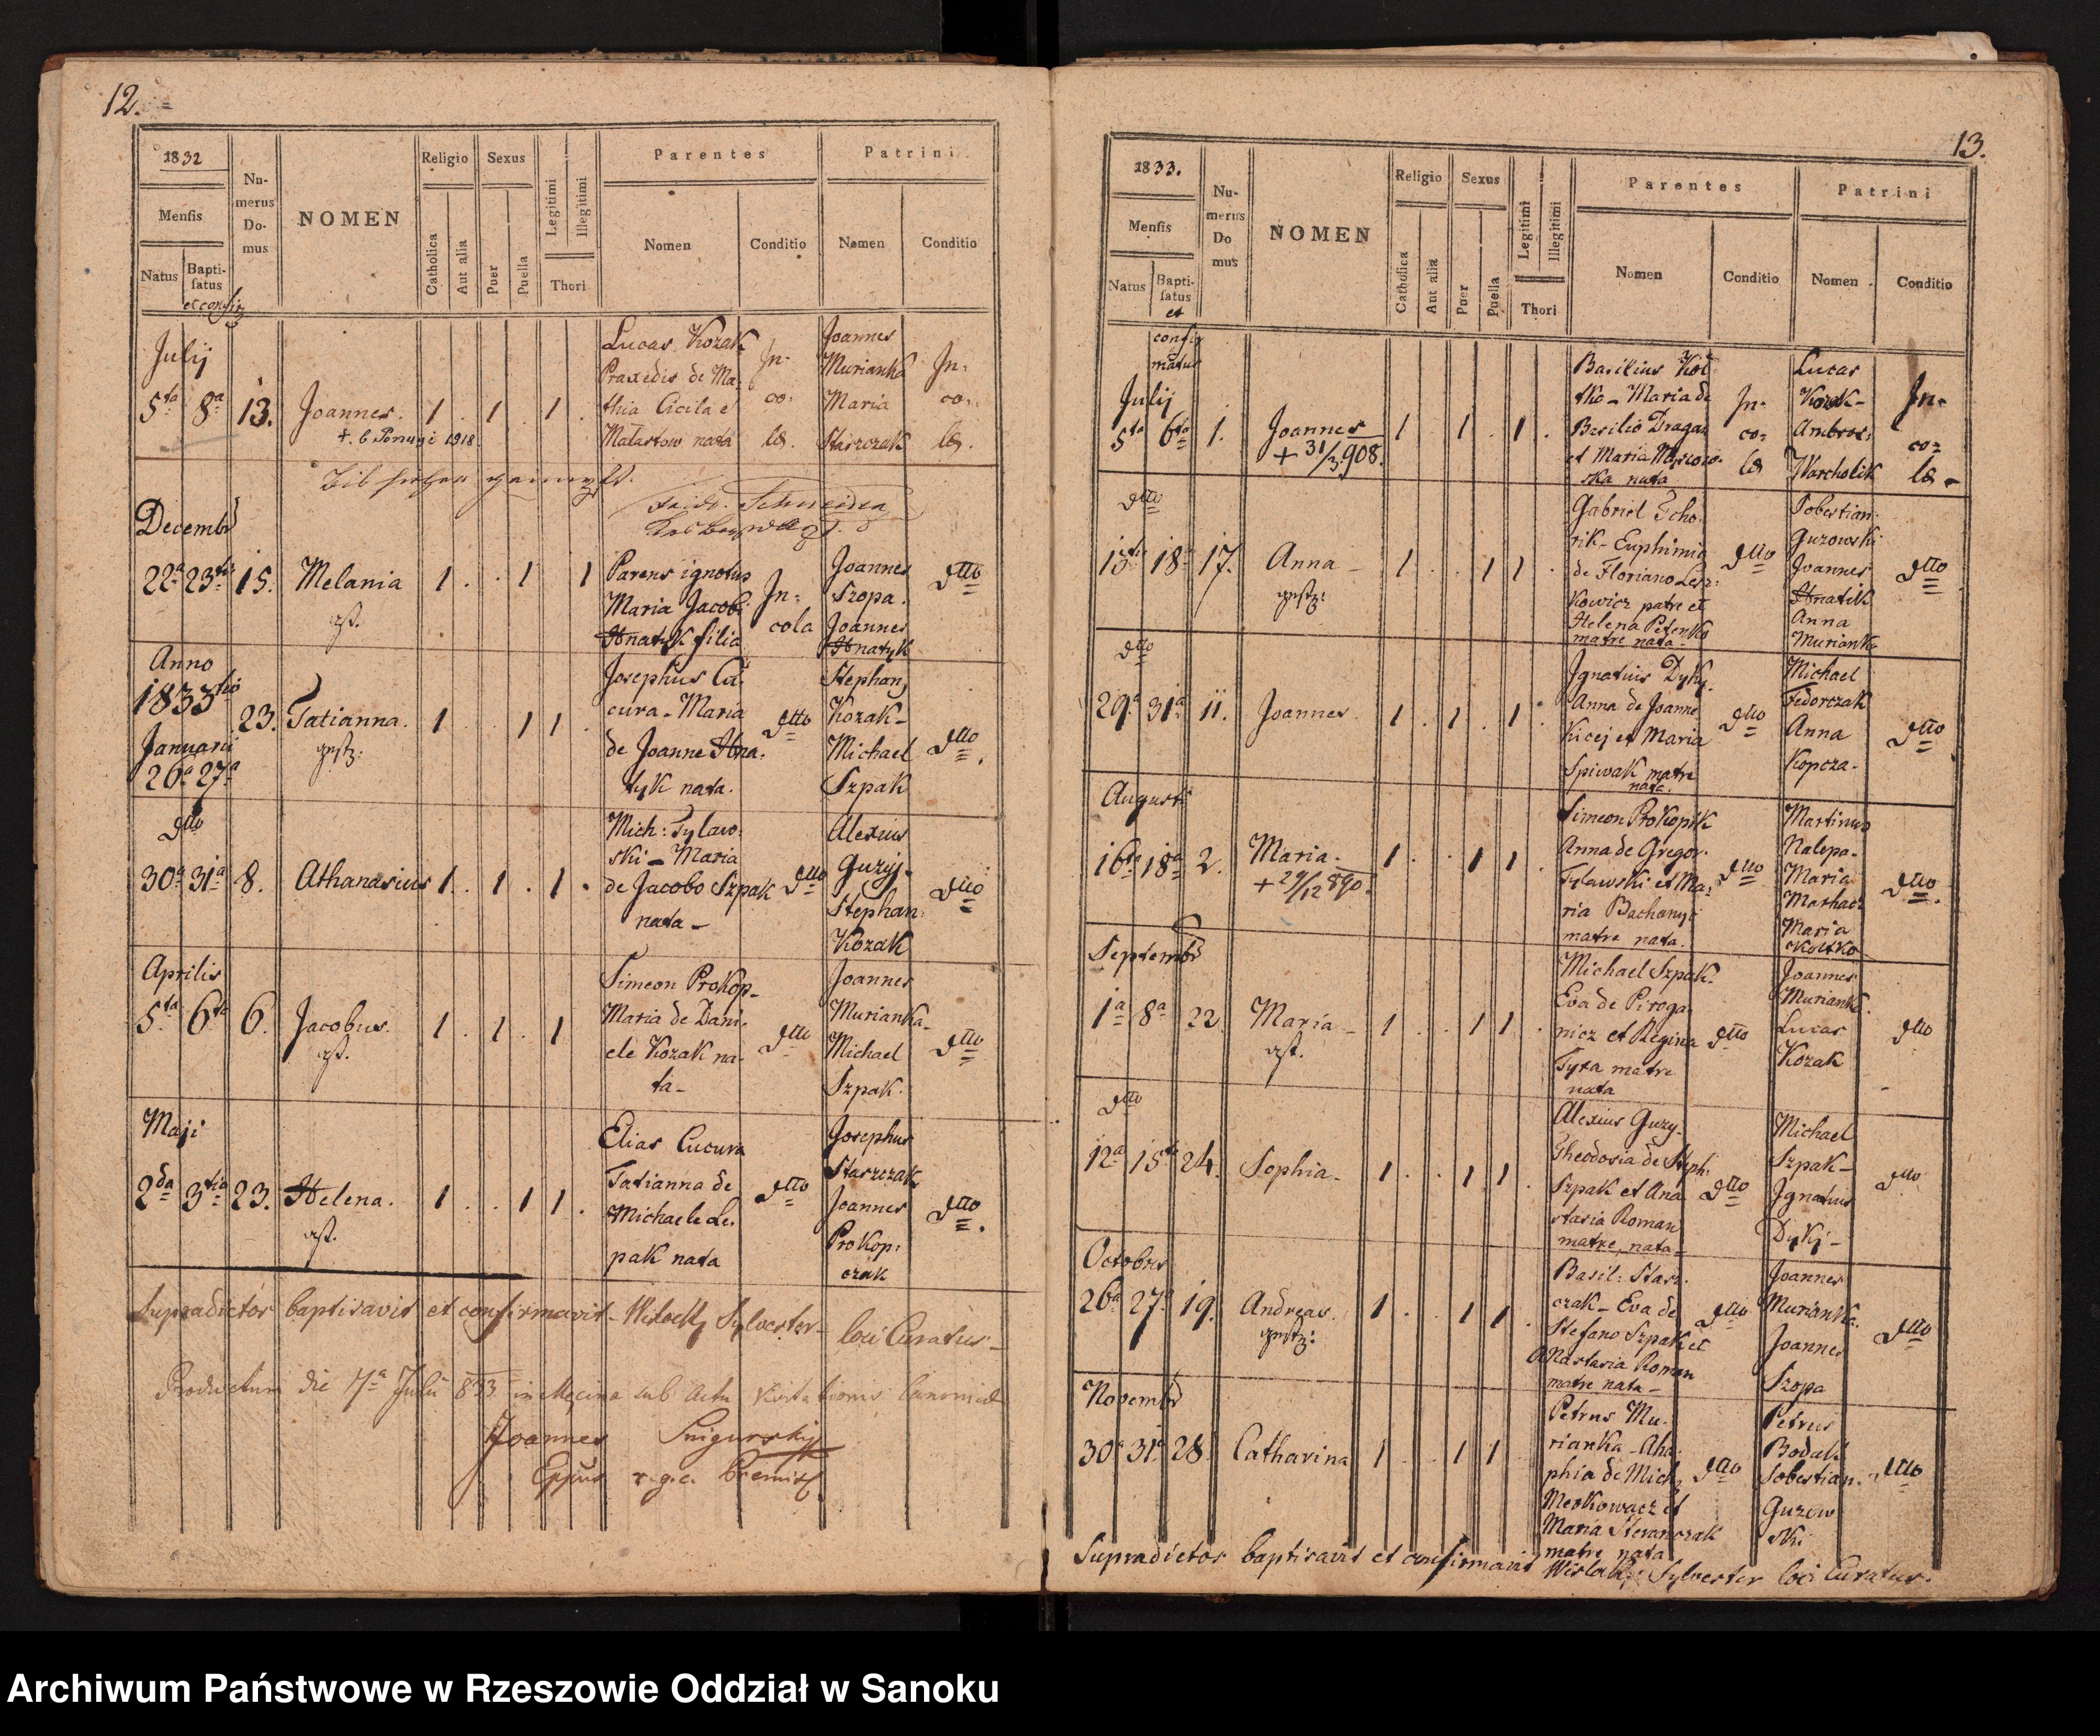 12.
1832
Mensis
Natus
Bapti-
satus
Nu-
merus
Do-
mus
NOMEN
Religio
Catholica
Aut alia
Sexus
Puer
Puella
Legitimi
Illegitimi
Thori
Parentes
Nomen
Conditio
Patrini
Nomen
Conditio
Julij
5ta 8a 13. Joannes. 1 1 1
Lucas Kozak
Praxedis de Ma-
thia Cicila et
nata
In-
co-
lae
Joannes
Murianka
Maria
Staszczak
In-
co-
lae
Decembr
22a 23tia 15. Melania 1 1 1
Parens ignotus
Maria Jacobi
Hnatyk filia
In-
cola
Joannes
Szopa.
Joannes
Hnatyk
dtto
Anno
1833tio
Januarii
26a 27a
23. Tatianna. 1 1 1
Josephus Cu-
cura - Maria
de Joanne Hna-
tyk nata.
dtto
Stephan
Kozak -
Michael
Szpak
dtto
dtto
30a 31a 8. Athanasius 1 1 1
Mich: Tylaw-
ski - Maria
de Jacobo Szpak
nata -
dtto
Alexius
Guzyj -
Stephan
Kozak
dtto
Aprilis
5ta 6ta 6. Jacobus. 1 1 1
Simeon Prokop -
Maria de Dani-
ele Kozak na-
ta -
dtto
Joannes
Murianka -
Michael
Szpak.
dtto
Maji
2da 3tia 23. Helena. 1 1 1
Elias Cucura
Tatianna de
Michaele Le-
pak nata
dtto
Josephus
Staszczak
Joannes
Prokop-
czak
dtto
Supradictos baptisavit et confirmavit - Sylvester - loci Curatus -
Productum die 7a Julii 833 in Męcina sub actu
Joannes Snigurskij
13.
1833.
Mensis
Natus
Bapti-
satus
et
Nu-
merus
Do
mus
NOMEN
Religio
Catholica
Aut alia
Sexus
Puer
Puella
Legitimi
Illegitimi
Thori
Parentes
Nomen
Conditio
Patrini
Nomen
Conditio
Julij
5ta 6ta 1. Joannes 1 1 1
+ 31/3 908.
Basilius Kot-
tko - Maria de
Basilio Dragan
et Maria
nata
In-
co-
lae
Lucas
Kozak -
Warcholik
In-
co-
lae
dtto
15ta 18a 17. Anna - 1 1 1
Gabriel
rik - Euphimia
de Floriano Lesz-
kowicz patre et
Helena Petenko
matre nata.
dtto
Guzowski
Joannes
Hnatik
Anna
Murianka
dtto
dtto
29a 31a 11. Joannes 1 1 1
Ignatius Dyky.
Anna de Joanne
Kicej et Maria
Spiwak matre
nata.
dtto
Michael
Fedorczak
Anna
Kopcza -
dtto
Augusti
16ta 18a 2. Maria. 1 1 1
+ 29/12 890.
Simeon Prokopik
Anna de Gregor.
Tylawski et Ma-
ria
matre nata.
dtto
Martinus
Nalepa -
Maria
Maria
Kottko
dtto
Septembr
1a 8a 22. Maria - 1 1 1
Michael Szpak.
Eva de Piroga-
nicz et Regina
Tyxa matre
nata
dtto
Joannes
Murianka.
Lucas
Kozak
dtto
dtto
12a 15ta 24. Sophia - 1 1 1
Alexius Guzy.
Theodosia de Steph.
Szpak et Ana-
stasia Roman
matre nata -
dtto
Michael
Szpak -
Ignatius
Dykj -
dtto
Octobris
26a 27a 19. Andreas. 1 1 1
Basil: Stasz-
czak - Eva de
Stefano Szpak et
Anastasia Roman
matre nata -
dtto
Joannes
Murianka.
Joannes
Szopa
dtto
Novembr
30a 31a 28. Catharina 1 1 1
Petrus Mu-
rianka - Aha-
phia de Mich.
et
Maria
matre nata
dtto
Petrus
Bodak
Sobestian.
Guzow
ski
dtto
Supradictos baptisavit et confirmavit Sylvester loci Curatus.
Archiwum Państwowe w Rzeszowie Oddział w Sanoku